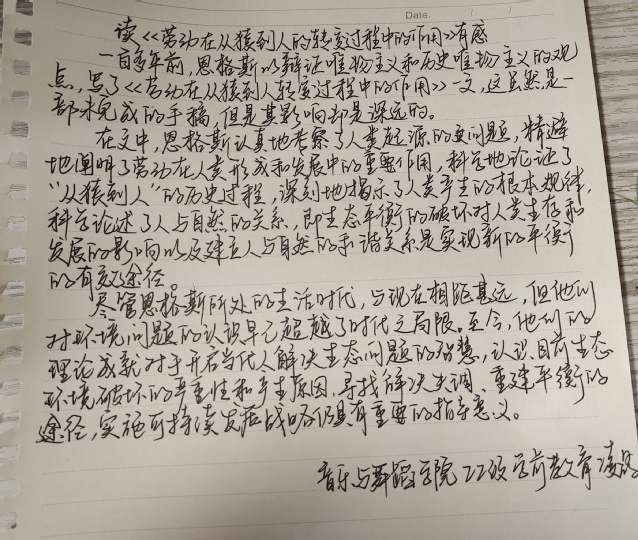 Date.
读《劳动在从猿到人的转变过程中的作用》有感
一百多年前,恩格斯以辩证唯物主义和历史唯物主义的观
点,写了《劳动在从猿到人转变过程中的作用》一文,这虽然是一
部未完成的手稿,但是其影响却是深远的。
在文中,恩格斯认真地考察了人类起源的问题,精辟
地阐明了劳动在人类形成和发展中的重要作用,科学地论证了
“从猿到人”的历史过程,深刻地揭示了人类产生的根本规律,
科学论述了人与自然的关系,即生态平衡的破坏对人类生存和
发展的影响以及建立人与自然的和谐关系是实现新的平衡
的有效途径。
尽管恩格斯所处的生活时代,与现在相距甚远,但他们
对环境问题的认识早已超越了时代之局限。至今,他们的
理论成就对于开启当代人解决生态问题的智慧,认识目前生态
环境破坏的严重性和产生原因,寻找解决失调、重建平衡的
途径,实施可持续发展战略仍具有重要的指导意义。
音乐与舞蹈学院22级学前教育